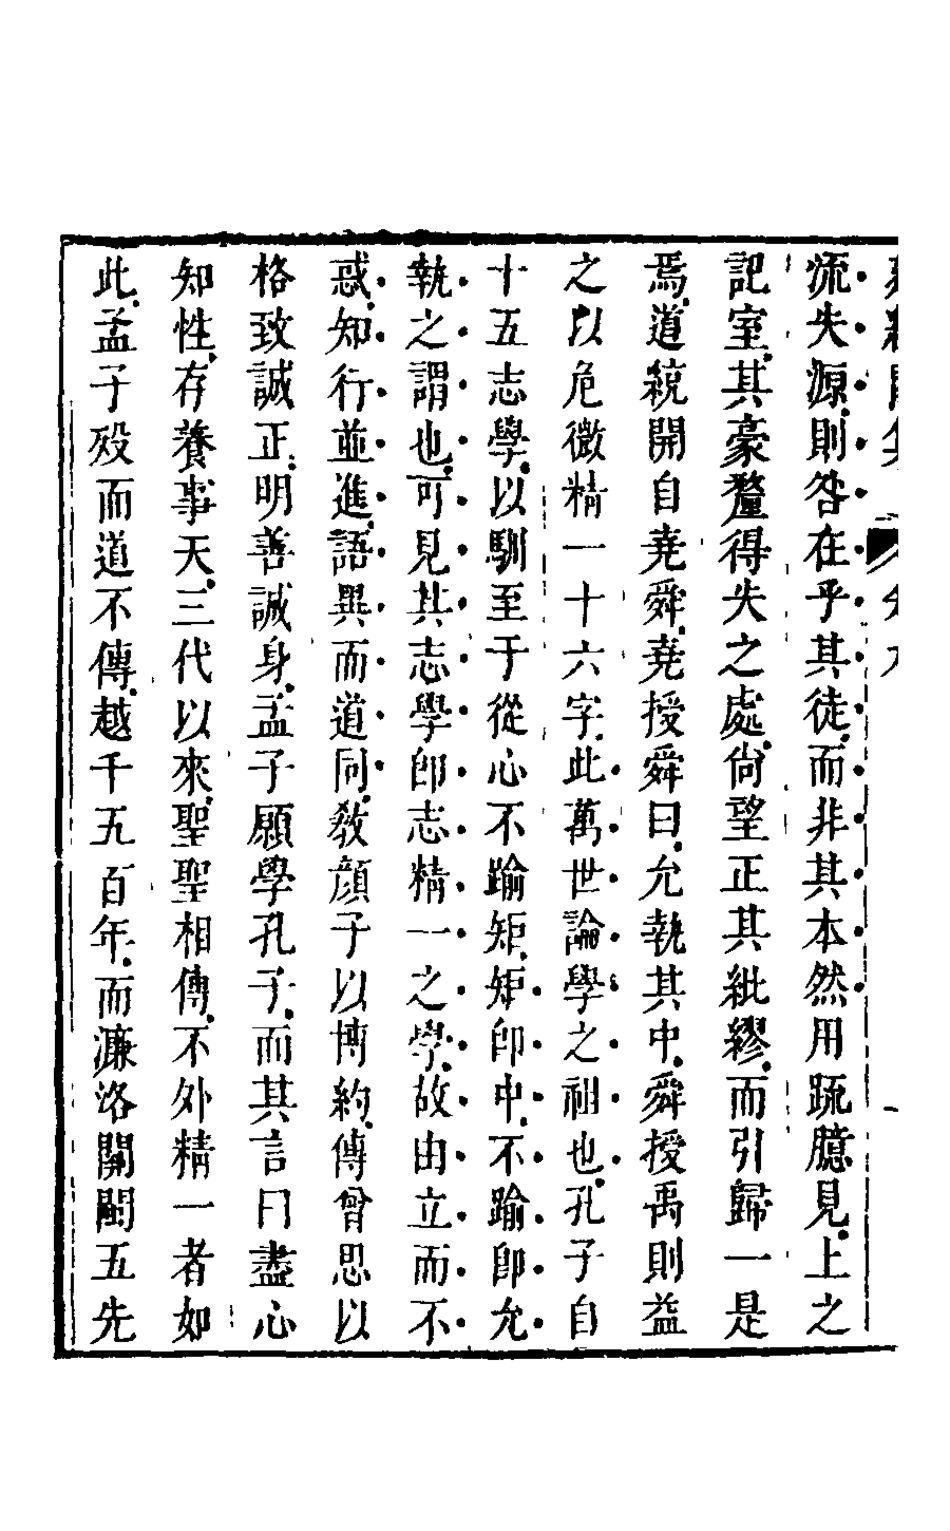 流失源則咎在乎其徒而非其本然用疏臆見上之
記室其豪釐得失之處尙望正其紕繆而引歸一是
焉道統開自堯舜堯授舜曰允執其中舜授禹則益
之以危微精一十六字此萬世論學之祖也孔子自
十五志學以馴至于從心不踰矩矩卽中不踰卽允
執之謂也可見其志學卽志精一之學故由立而不
惑知行並進語異而道同敎顔子以博約傳曾思以
格致誠正明善誠身孟子願學孔子而其言曰盡心
知性存養事天三代以來聖聖相傳不外精一者如
此孟子殁而道不傳越千五百年而濂洛關閩五先